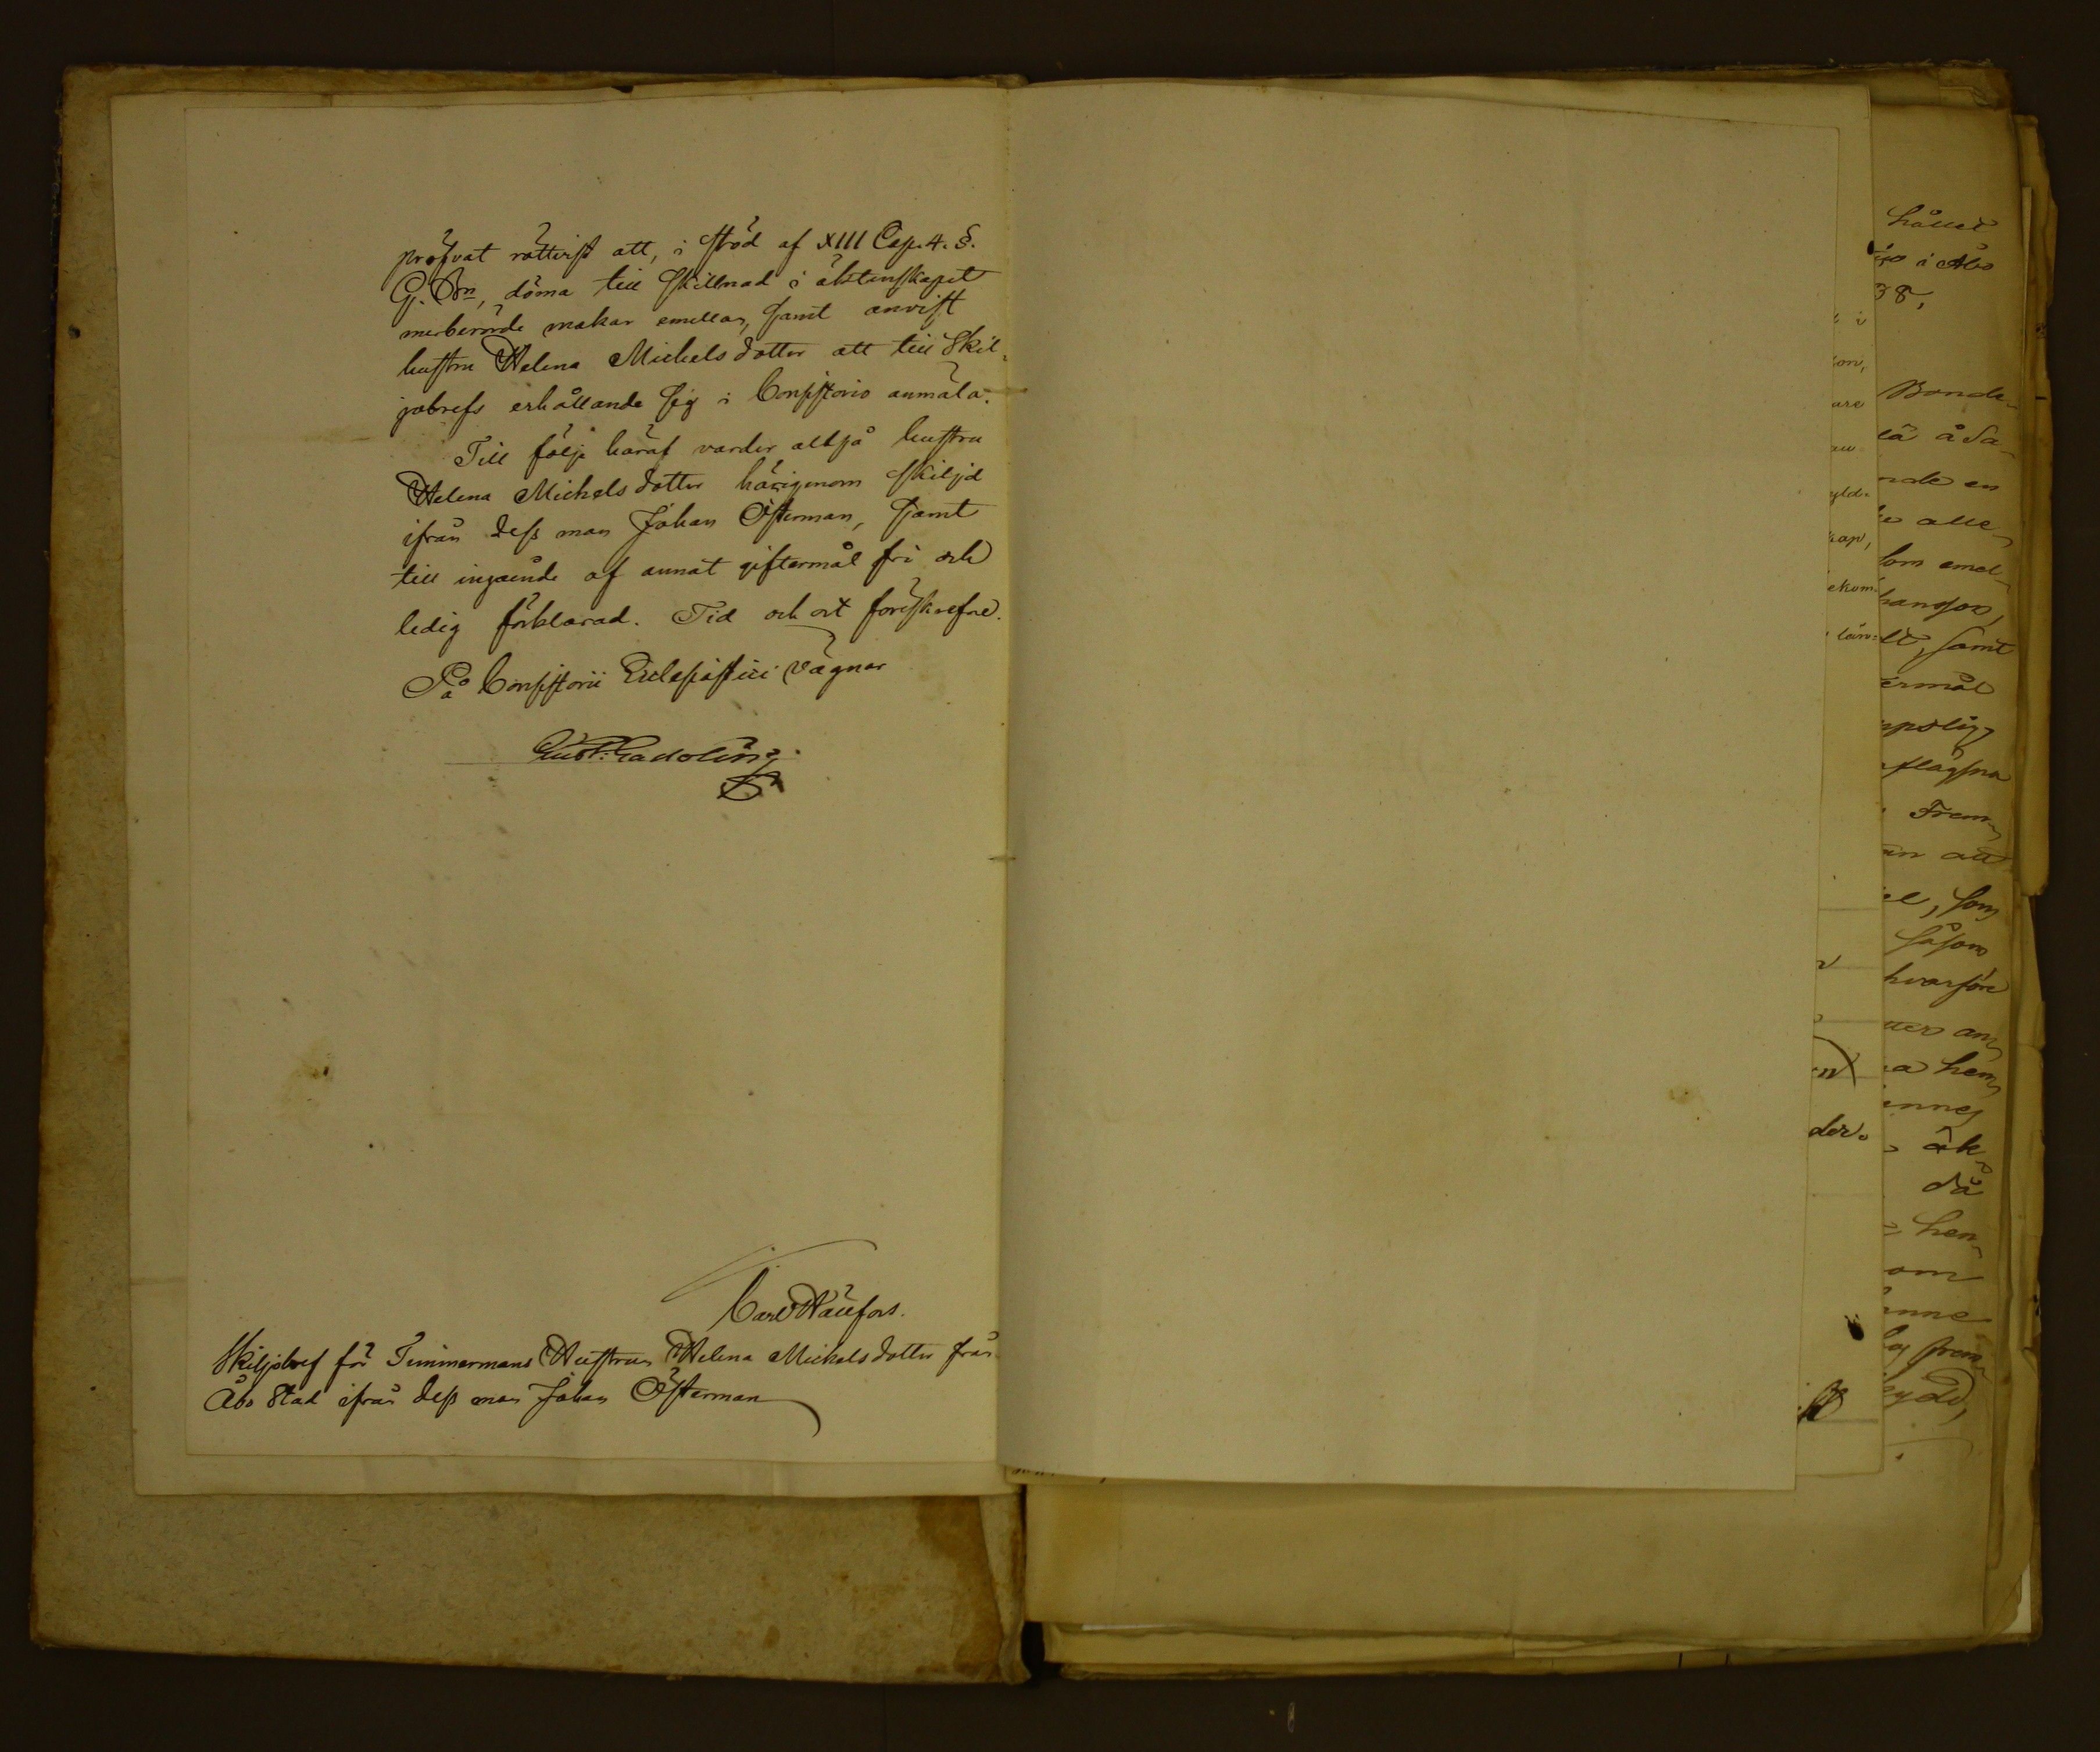 pröfvat rättvist att, i stöd af XIII Cap. 4. §.
G. Bn, döma till skillnad i äktenskapet
merberörde makar emellan, samt anvist
hustru Helena Michelsdotter att till Skil-
jobrefs erhållande sig i Consistorio anmäla.
Till följe häraf varder altså hustru
Helena Michelsdotter härigenom skiljd
ifrån dess man Johan Österman, samt
till ingående af annat giftermål fri och
ledig förklarad. Tid och ort föreskrefne.
På Consistorii Ecclesiastici vägnar
Gust: Gadolin
Carl Hällfors.
Skiljobref för Timmermans Hustrun Helena Michelsdotter från
Åbo Stad ifrån dess man Johan Österman
hållet
i Åbo
38,
Bonde-
en
alle-
som emel-
samt
Frem-
att
som
såsom
hvarföre
an-
hem-
äk-
då
hen-
om
der.